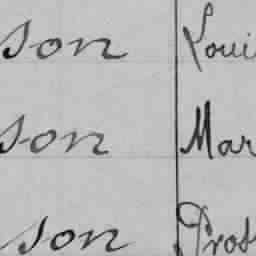 son Loui
son Mar
son Prot